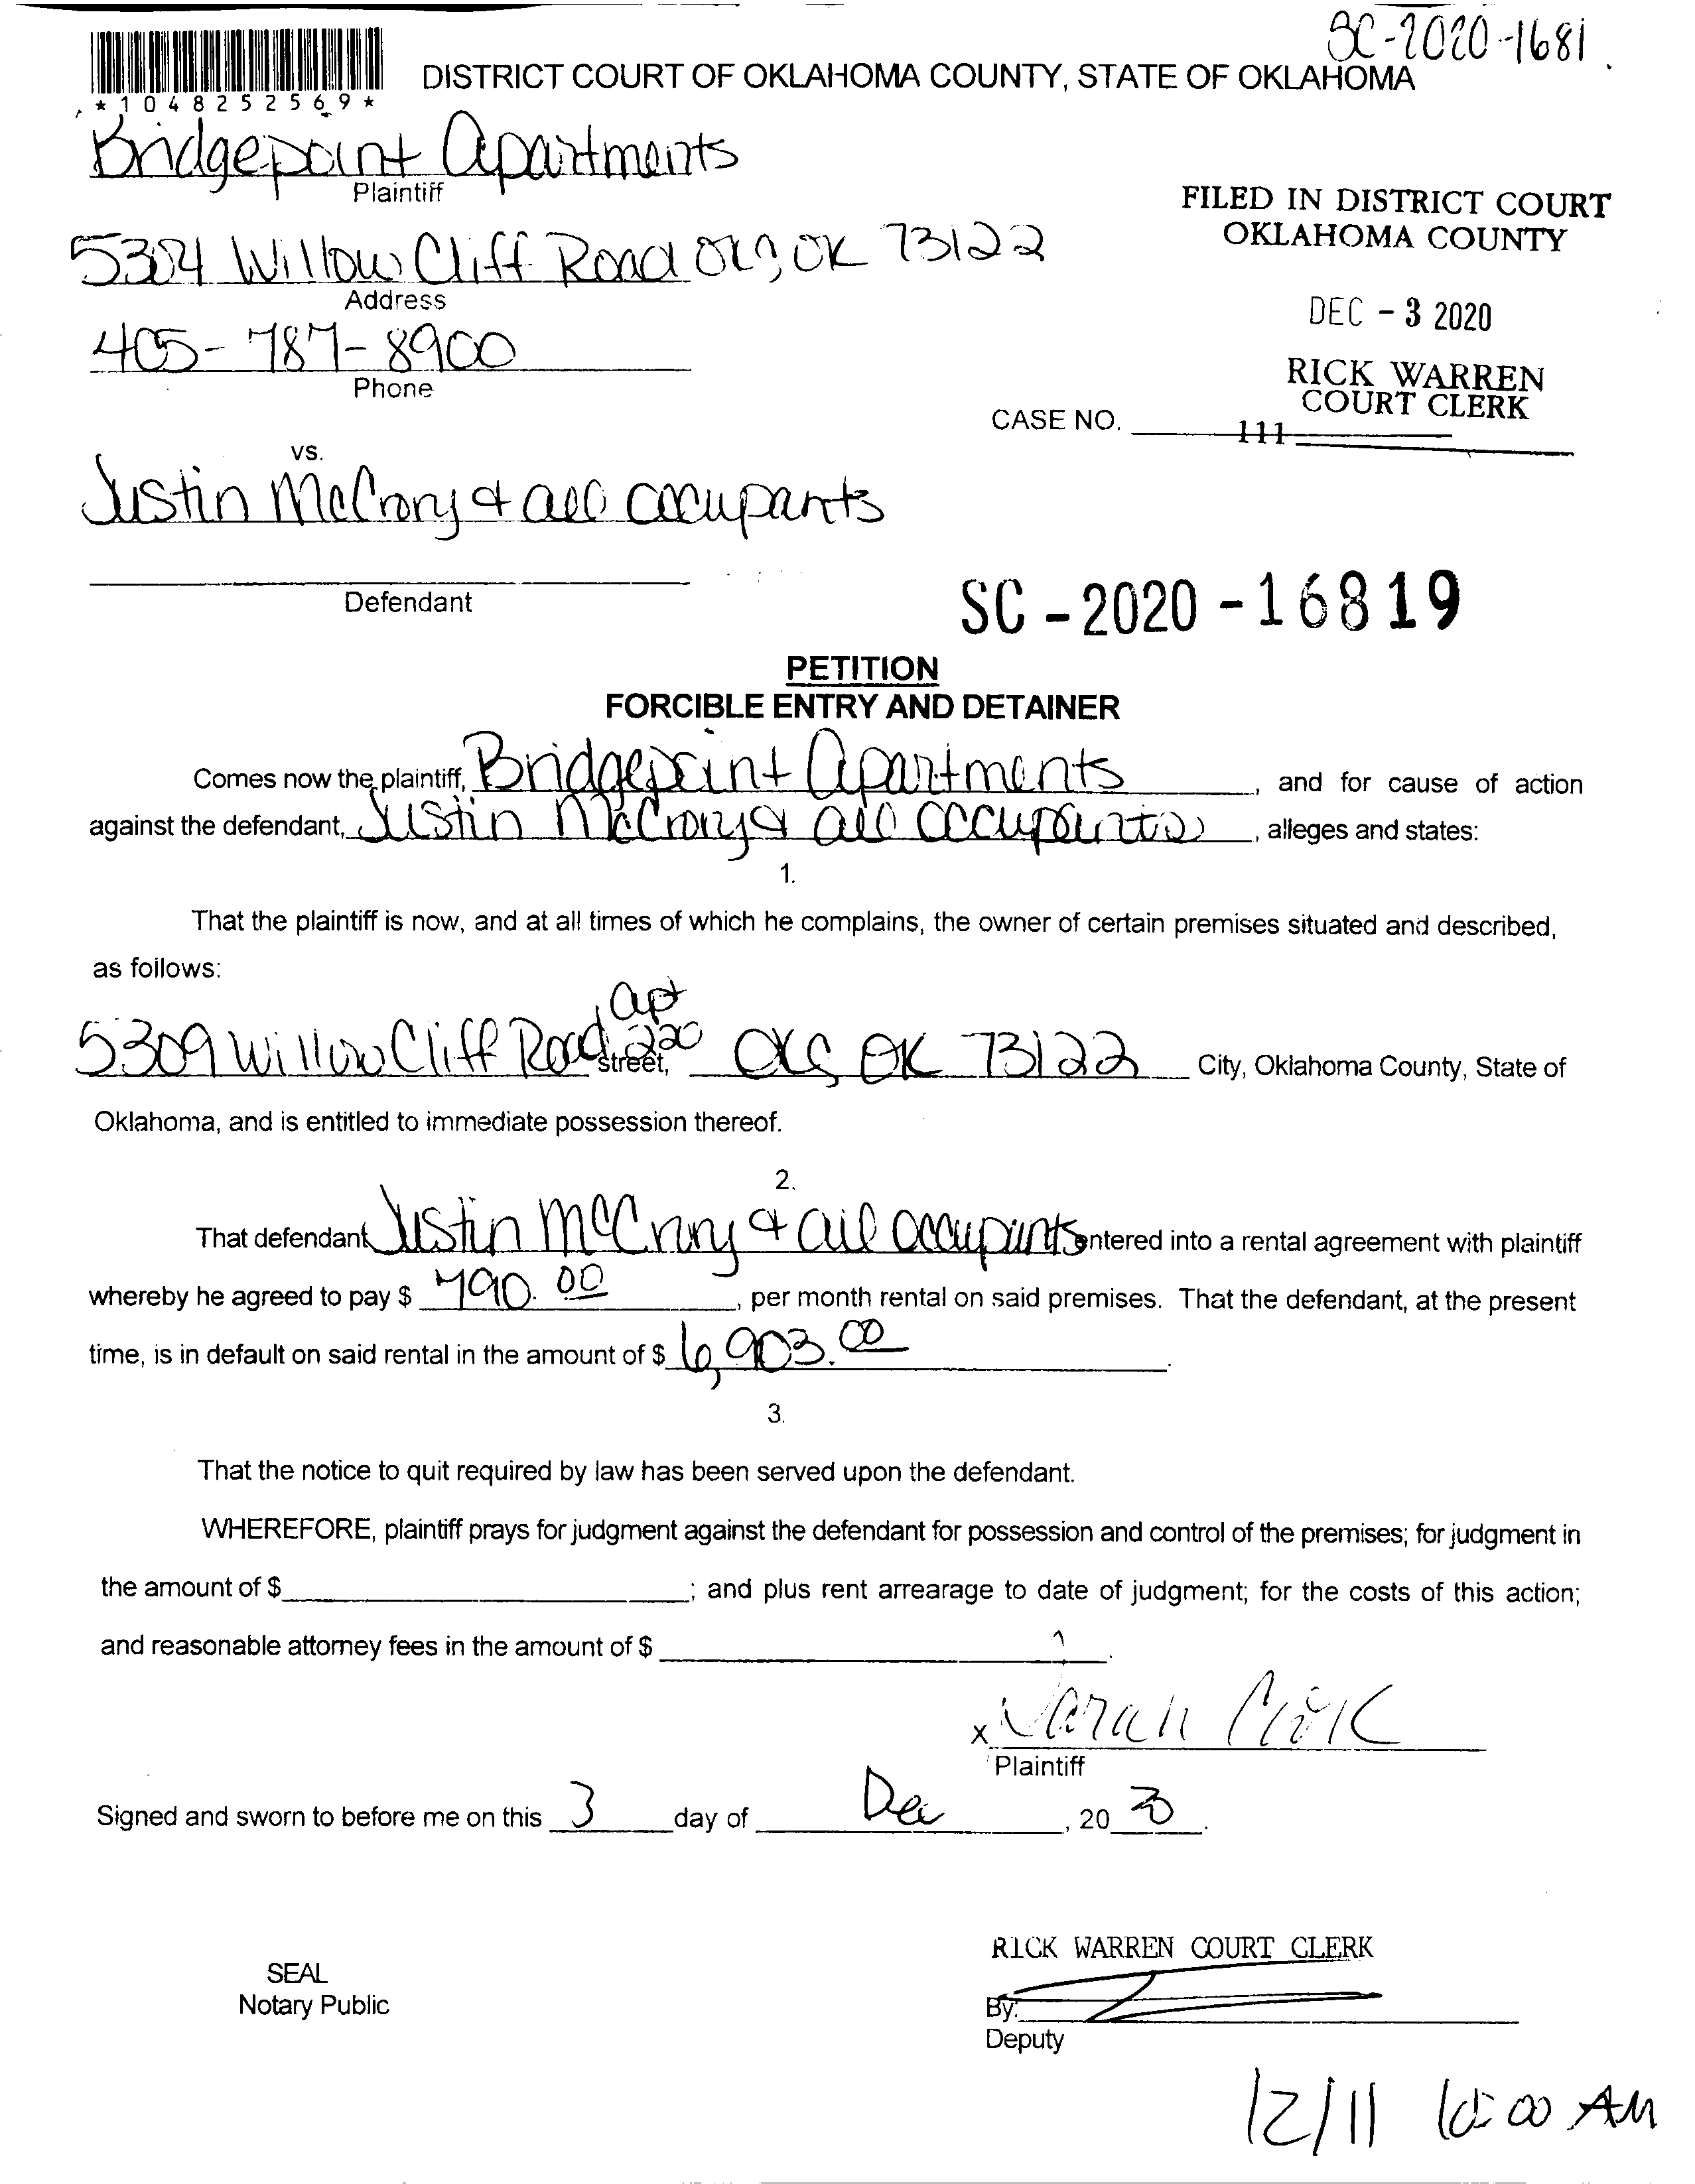 SC-2020-1681
*1048252569*
DISTRICT COURT OF OKLAHOMA COUNTY, STATE OF OKLAHOMA
Bridgepoint Apartments
Plaintiff
FILED IN DISTRICT COURT
OKLAHOMA COUNTY
5304 Willow Cliff Road OKC, OK 73122
Address
DEC - 3 2020
405-787-8900
Phone
RICK WARREN
COURT CLERK
CASE NO.
111
vs.
Justin McCrory & all occupants
Defendant
SC - 2020 - 16819
PETITION
FORCIBLE ENTRY AND DETAINER
Comes now the plaintiff, Bridgepoint Apartments, and for cause of action
against the defendant, Justin McCrory & all occupants, alleges and states:
1.
That the plaintiff is now, and at all times of which he complains, the owner of certain premises situated and described,
as follows:
5309 Willow Cliff Road, apt 220 street, OKC, OK 73122 City, Oklahoma County, State of
Oklahoma, and is entitled to immediate possession thereof.
2.
That defendant Justin McCrory & all occupants entered into a rental agreement with plaintiff
whereby he agreed to pay $ 790.00, per month rental on said premises. That the defendant, at the present
time, is in default on said rental in the amount of $ 6,903.00.
3.
That the notice to quit required by law has been served upon the defendant.
WHEREFORE, plaintiff prays for judgment against the defendant for possession and control of the premises; for judgment in
the amount of $ ; and plus rent arrearage to date of judgment; for the costs of this action;
and reasonable attorney fees in the amount of $ .
x Sarah
Plaintiff
Signed and sworn to before me on this 3 day of Dec, 20 20.
RICK WARREN COURT CLERK
SEAL
Notary Public
By:
Deputy
12/11 10:00 AM